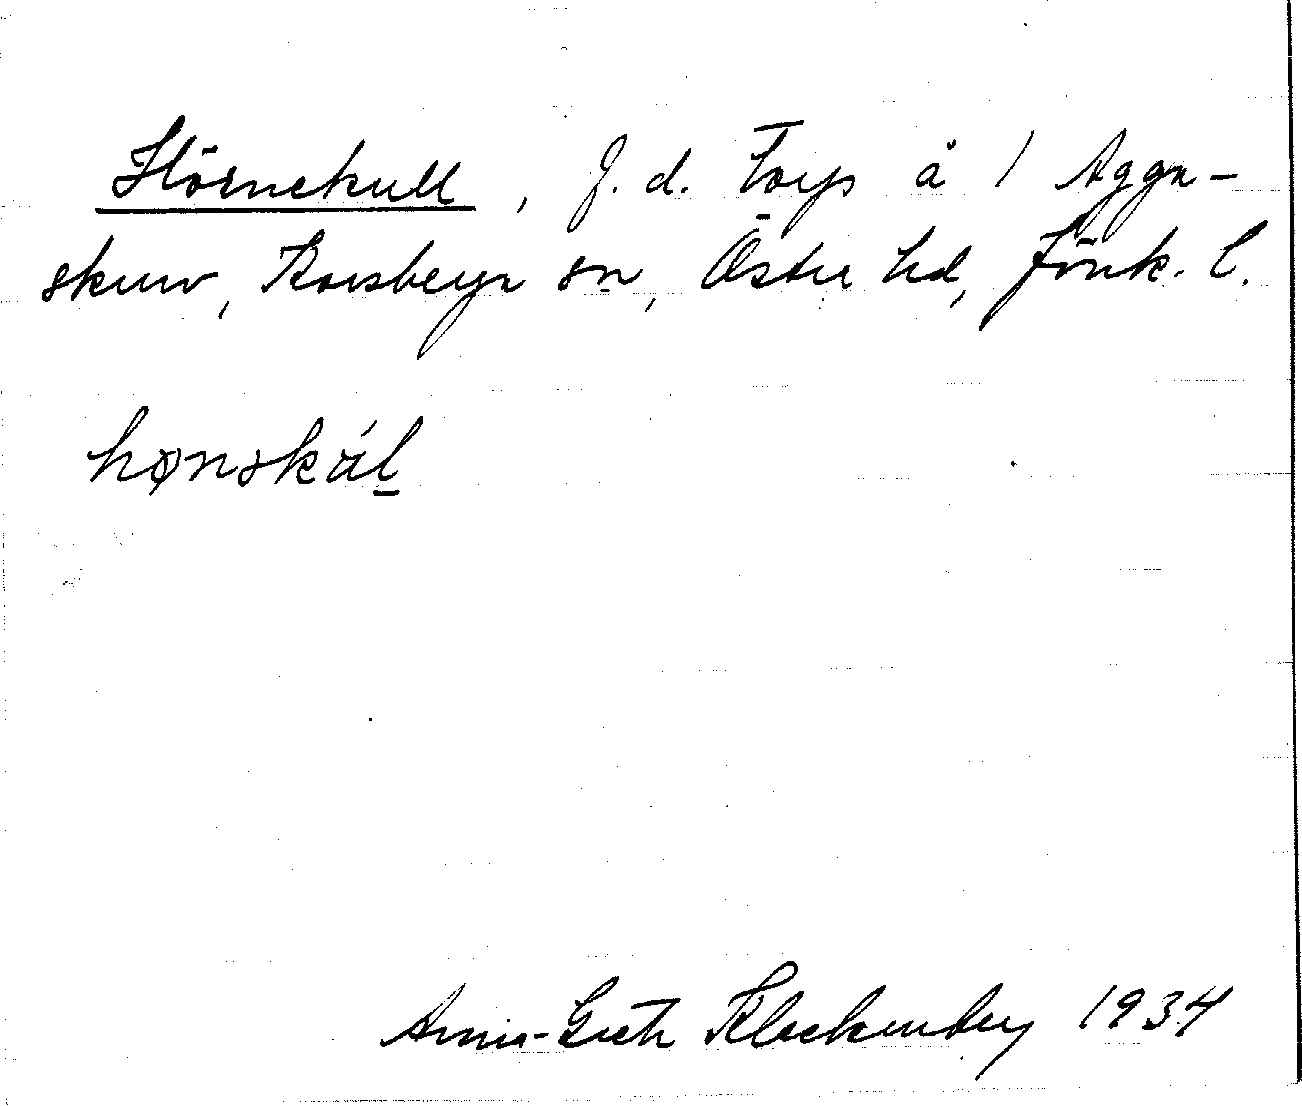 Hörnekull, f.d. torp å 1 Agga-
skuru, Korsberga sn, Östra hd, Jönk. l.
hønskúl
Anna-Greta Klockenberg 1934